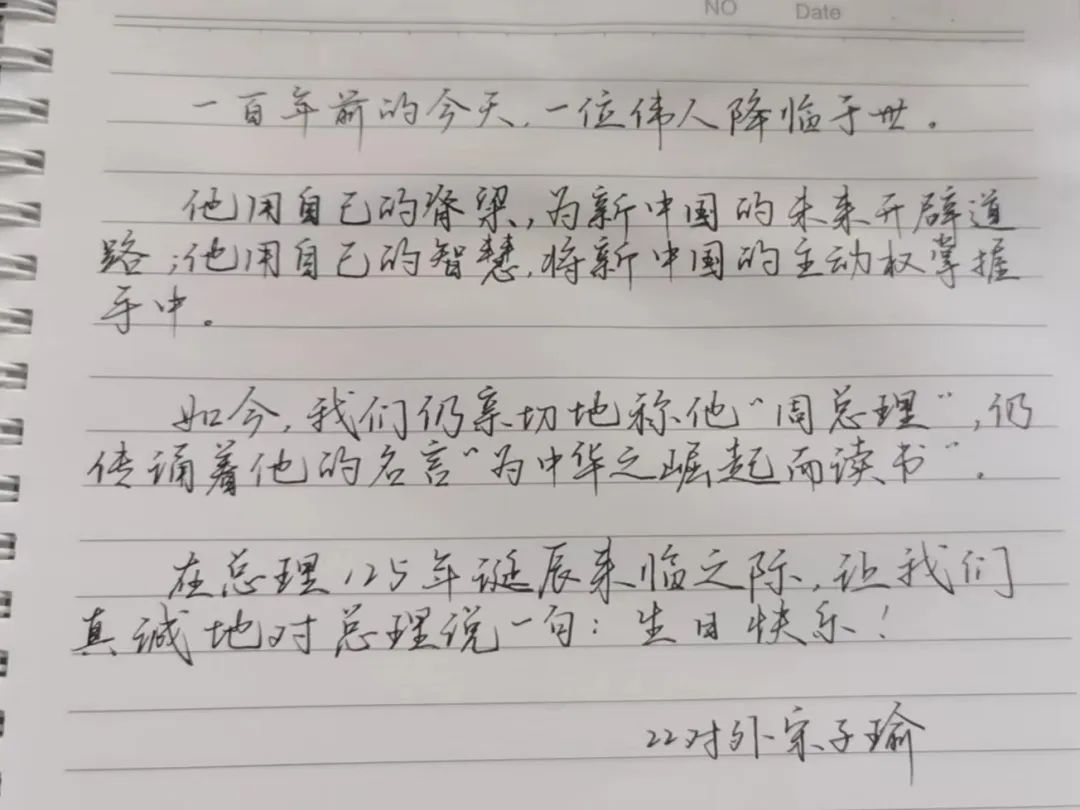 NO Date
一百年前的今天,一位伟人降临于世。
他用自己的脊梁,为新中国的未来开辟道
路;他用自己的智慧,将新中国的主动权掌握
手中。
如今,我们仍亲切地称他“周总理”,仍
传诵着他的名言“为中华之崛起而读书”。
在总理125年诞辰来临之际,让我们
真诚地对总理说一句:生日快乐!
22对外宋子瑜